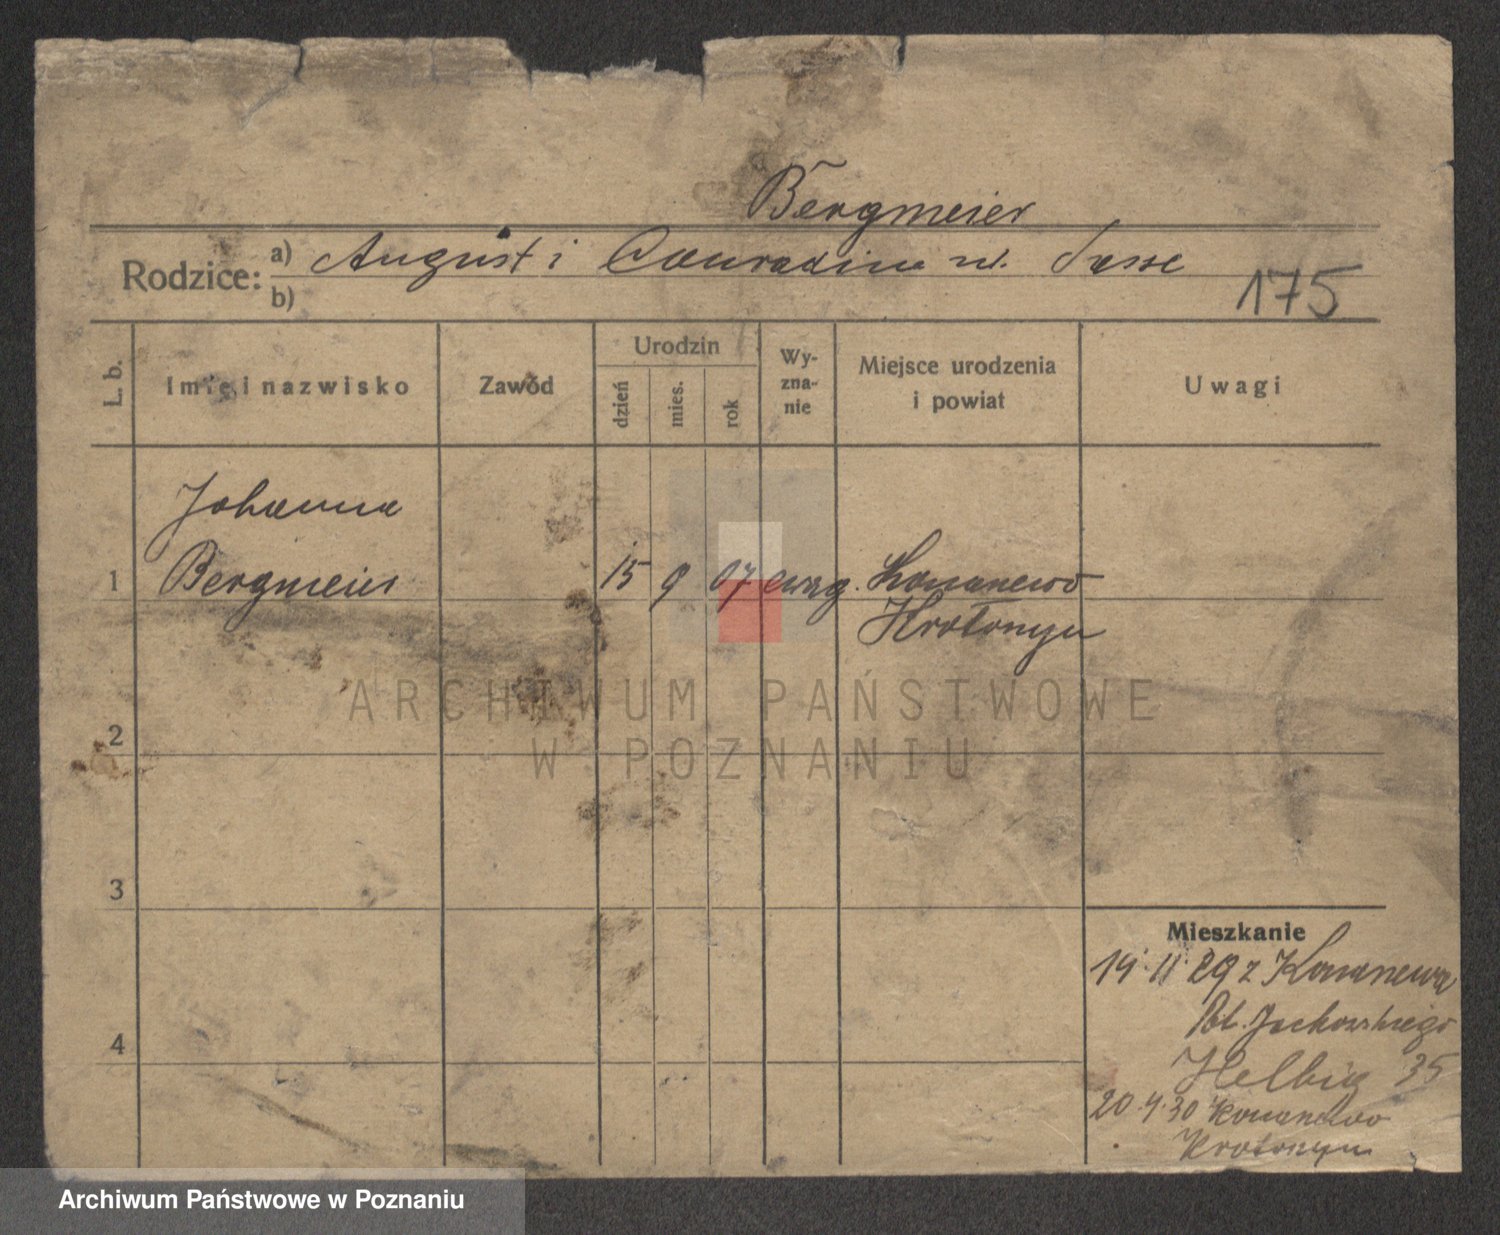 Bergmeier
Rodzice: a) August i Conradine ur. Sasse
b)
175
L. b.
Imię i nazwisko
Zawód
Urodzin
dzień
mies.
rok
Wy-
zna-
nie
Miejsce urodzenia
i powiat
Uwagi
Johanna
1 Bergmeier 15 9 07 ewag. Konanewo
Krotoszyn
2
3
4
Mieszkanie
14.11.29 z
Pl.
Helbig 35
20.4.30
ARCHIWUM PAŃSTWOWE
W POZNANIU
Archiwum Państwowe w Poznaniu